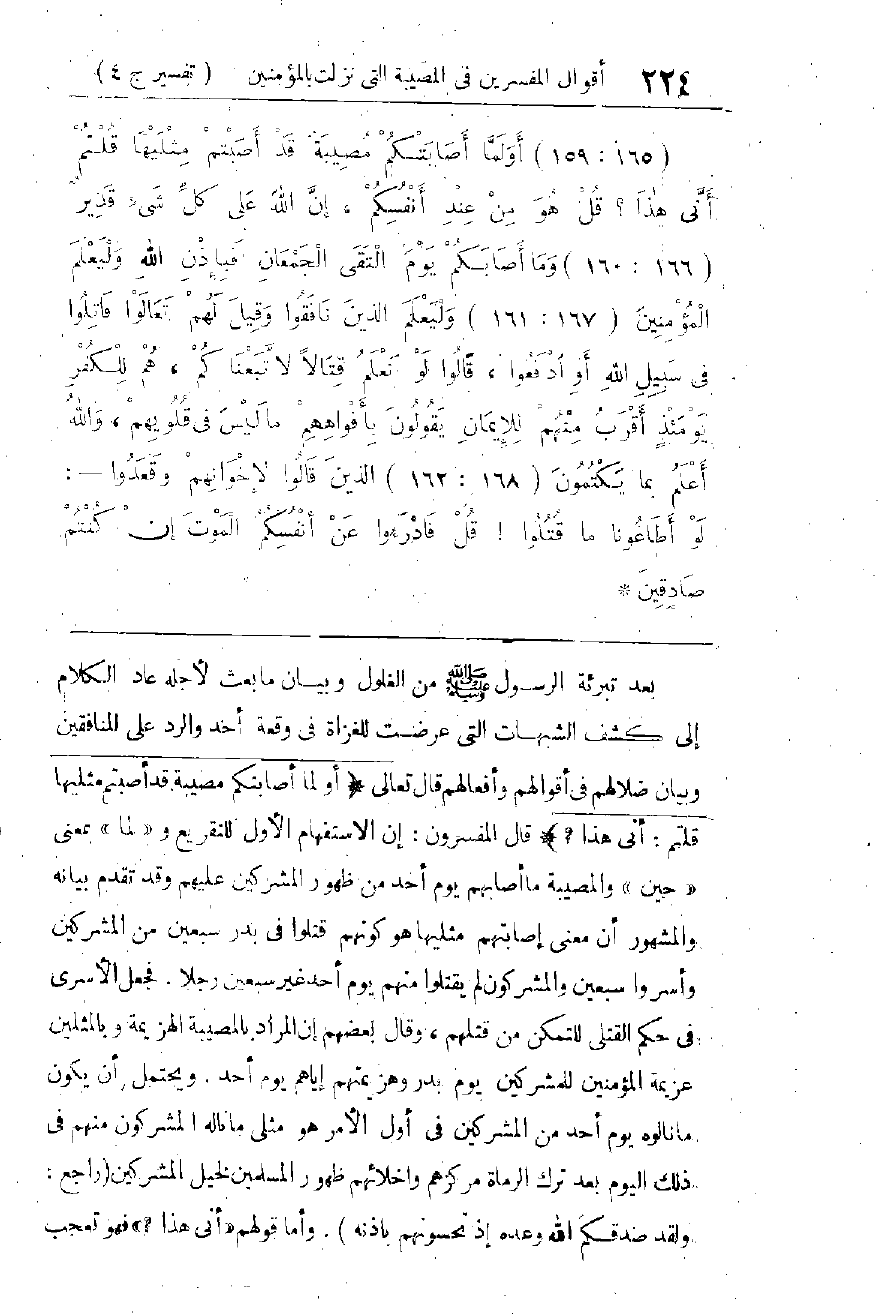 ٢٢٤ أقوال المفسرين فى المصيبة التى نزلت بالمؤمنين ( تفسير ج ٤ )
( ١٦٥ : ١٥٩ ) أَوَلَمَّا أَصَابَتْكُمْ مُصِيبَةٌ قَدْ أَصَبْتُمْ مِثْلَيْهَا قُلْتُمْ
أَنَّى هٰذَا ؟ قُلْ هُوَ مِنْ عِنْدِ أَنْفُسِكُمْ ، إِنَّ اللهَ عَلَى كلِّ شَىءٍ قَدِيرٌ
( ١٦٦ : ١٦٠ ) وَمَا أَصَابَكُمْ يَوْمَ الْتَقَى الْجَمْعَانِ فَبِإِذْنِ اللهِ وَلِيَعْلَمَ
الْمُؤْمِنِينَ ( ١٦٧ : ١٦١ ) وَلِيَعْلَمَ الذينَ نَافَقُوا وَقِيلَ لَهُمْ تَعَالَوْا قَاتِلُوا
فى سَبِيلِ اللهِ أَوِ ادْفَعُوا ، قَالُوا لَوْ نَعْلَمُ قِتَالاً لاَتَّبَعْنَا كُمْ ، هُمْ لِلْكُفْرِ
يَوْمَئِذٍ أَقْرَبُ مِنْهُمْ لِلإِيمَانِ يَقُولُونَ بِأَفْوَاهِهِمْ مَا لَيْسَ فى قُلُوبِهِمْ ، وَاللهُ
أَعْلَمُ بما يَكْتُمُونَ ( ١٦٨ : ١٦٢ ) الذينَ قَالُوا لإِخْوَانِهِمْ وَقَعَدُوا — :
لَوْ أَطَاعُونا ما قُتِلُوا ! قُلْ فَادْرَءُوا عَنْ أَنْفُسِكُمُ الْمَوْتَ إِن كُنْتُمْ
صَادِقِينَ *
بعد تبرئة الرسول ﷺ من الغلول وبيان ما بعث لأجله عاد الكلام
إلى كشف الشبهات التى عرضت للغزاة فى وقعة أحد والرد على المنافقين
وبيان ضلالهم فى أقوالهم وأفعالهم قال تعالى ﴿ أو لما أصابتكم مصيبة قد أصبتم مثليها
قلتم : أنى هذا ؟ ﴾ قال المفسرون : إن الاستفهام الأول للتقريع و « لما » بمعنى
« حين » والمصيبة ما أصابهم يوم أحد من ظهور المشركين عليهم وقد تقدم بيانه
والمشهور أن معنى إصابتهم مثليها هو كونهم قتلوا فى بدر سبعين من المشركين
وأسروا سبعين والمشركون لم يقتلوا منهم يوم أحد غير سبعين رجلا . فجعل الأسرى
فى حكم القتلى للتمكن من قتلهم ، وقال بعضهم إن المراد بالمصيبة الهزيمة وبالمثلين
عزيمة المؤمنين للمشركين يوم بدر وهزيمتهم إياهم يوم أحد . ويحتمل أن يكون
ما نالوه يوم أحد من المشركين فى أول الأمر هو مثلى ما ناله المشركون منهم فى
ذلك اليوم بعد ترك الرماة مركزهم واخلائهم ظهور المسلمين لخيل المشركين (راجع :
ولقد صدقكم الله وعده إذ تحسونهم باذنه ) . وأما قولهم « أنى هذا ؟ » فهو تعجب